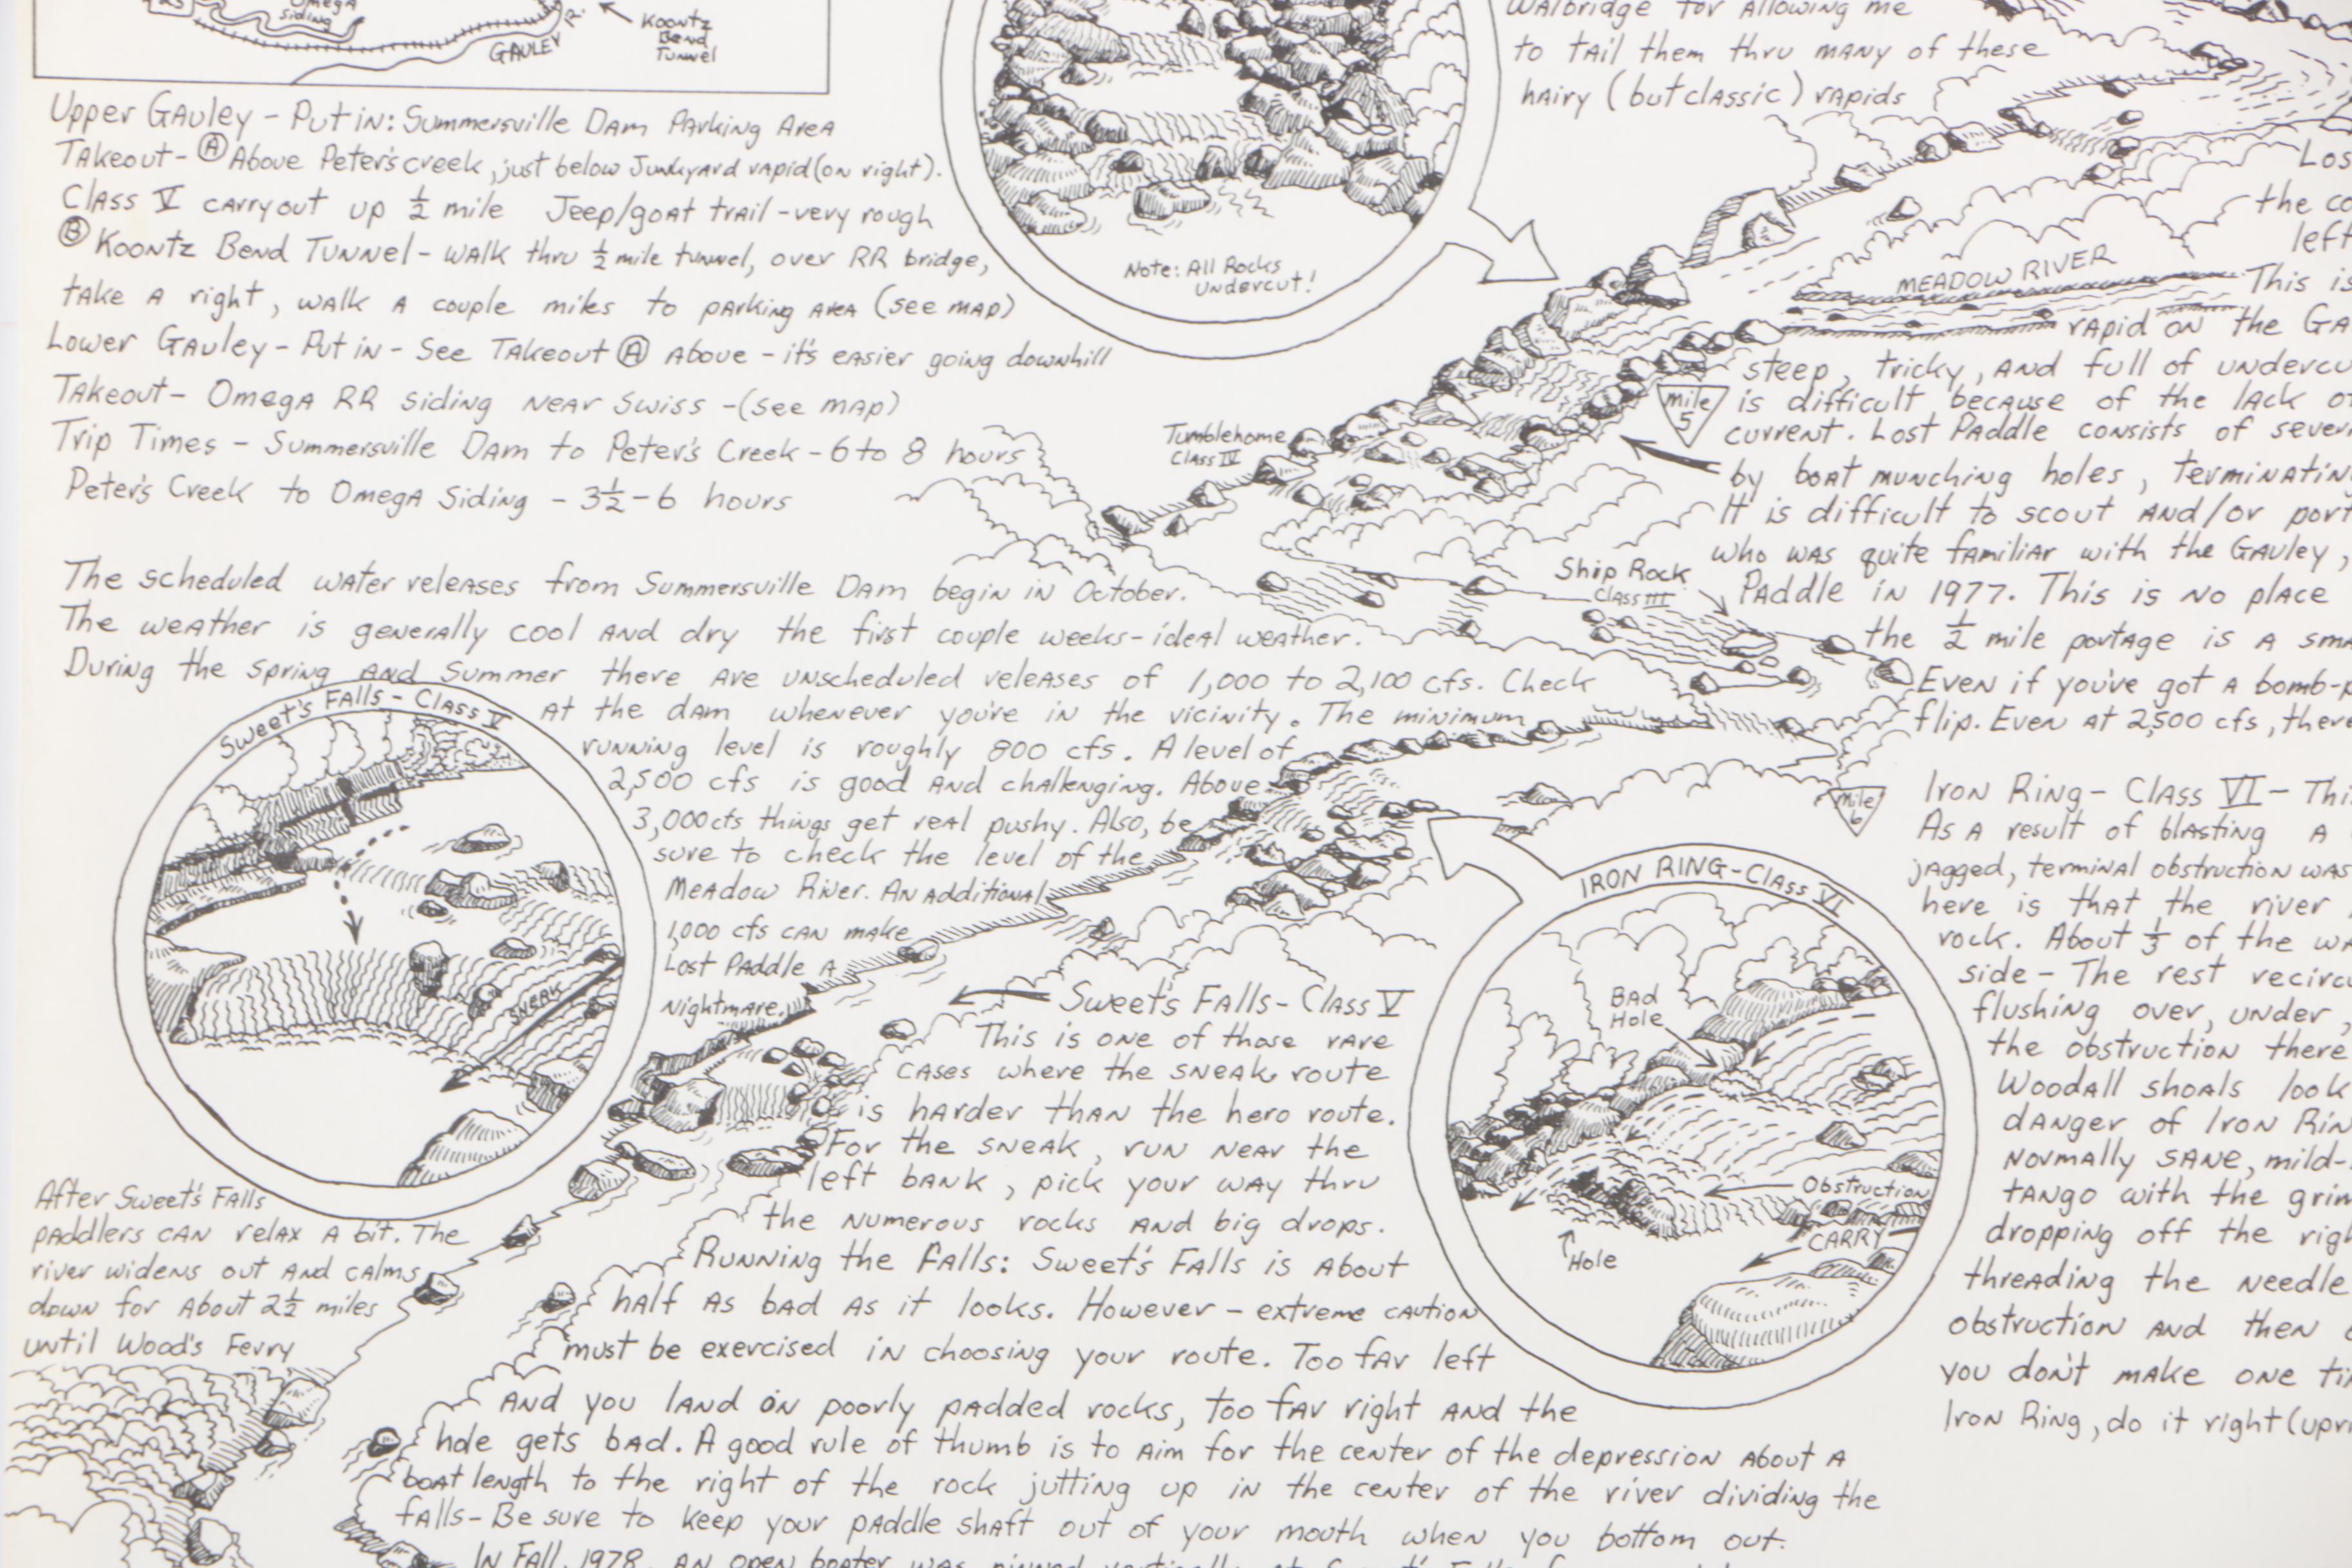 Omega
siding
GAULEY
R.
Koontz
Bend
Tunnel
Upper Gauley - Put in: Summersville Dam Parking Area
Takeout - Ⓐ Above Peter's creek, just below Junkyard rapid (on right).
Class V carryout up ½ mile Jeep/goat trail - very rough
Ⓑ Koontz Bend Tunnel - walk thru ½ mile tunnel, over RR bridge,
take a right, walk a couple miles to parking area (see map)
Lower Gauley - Put in - See Takeout Ⓐ above - it's easier going downhill
Takeout - Omega RR siding near Swiss - (see map)
Trip Times - Summersville Dam to Peter's Creek - 6 to 8 hours
Peter's Creek to Omega Siding - 3½ - 6 hours
The scheduled water releases from Summersville Dam begin in October.
The weather is generally cool and dry the first couple weeks - ideal weather.
During the spring and summer there are unscheduled releases of 1,000 to 2,100 cfs. Check
at the dam whenever you're in the vicinity. The minimum
running level is roughly 800 cfs. A level of
2,500 cfs is good and challenging. Above
3,000 cfs things get real pushy. Also, be
sure to check the level of the
Meadow River. An additional
1,000 cfs can make
Lost Paddle a
Nightmare.
Note: All Rocks
undercut!
Walbridge for allowing me
to tail them thru many of these
hairy (but classic) rapids
Tumblehome
Class IV
Ship Rock
Class III
MEADOW RIVER
mile
5
mile
6
Los
the co
left
This is
rapid on the Ga
steep, tricky, and full of undercu
is difficult because of the lack of
current. Lost Paddle consists of sever
by boat munching holes, terminatin
It is difficult to scout and/or port
who was quite familiar with the Gauley,
Paddle in 1977. This is no place
the ½ mile portage is a sma
Even if you've got a bomb-p
flip. Even at 2,500 cfs, there
Iron Ring - Class VI - Thi
As a result of blasting a
jagged, terminal obstruction was
here is that the river
rock. About ⅓ of the wa
side - The rest recircu
flushing over, under,
the obstruction there
Woodall shoals look
danger of Iron Rin
normally sane, mild-
tango with the grim
dropping off the righ
threading the needle
obstruction and then
you don't make one ti
Iron Ring, do it right (upri
IRON RING - Class VI
Bad
Hole
Obstruction
CARRY
Hole
Sweet's Falls - Class V
SNEAK
Sweet's Falls - Class V
This is one of those rare
cases where the sneak route
is harder than the hero route.
For the sneak, run near the
left bank, pick your way thru
the numerous rocks and big drops.
Running the Falls: Sweet's Falls is about
half as bad as it looks. However - extreme caution
must be exercised in choosing your route. Too far left
and you land on poorly padded rocks, too far right and the
hole gets bad. A good rule of thumb is to aim for the center of the depression about a
boat length to the right of the rock jutting up in the center of the river dividing the
falls - Be sure to keep your paddle shaft out of your mouth when you bottom out.
In Fall, 1978, an open boater was pinned vertically at Sweet's Falls
After Sweet's Falls
paddlers can relax a bit. The
river widens out and calms
down for about 2½ miles
until Wood's Ferry